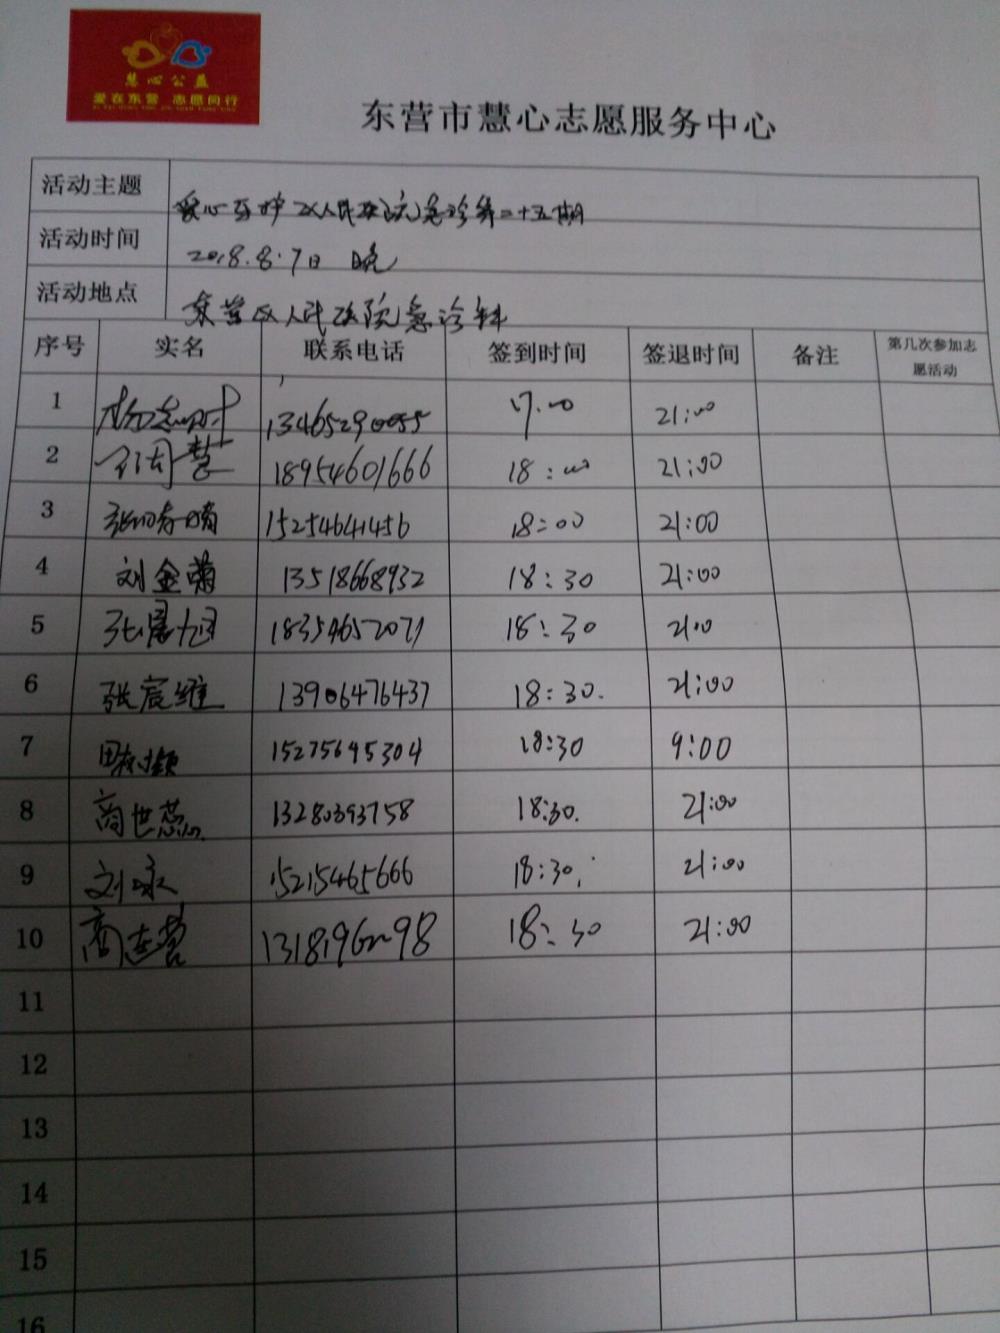 慧心公益
爱在东营 志愿同行
东营市慧心志愿服务中心
活动主题 爱心 区人民医院急诊第二十五期
活动时间 2018.8.7日 晚
活动地点 东营区人民医院急诊科
序号 实名 联系电话 签到时间 签退时间 备注 第几次参加志愿活动
1 13465290055 17:00 21:00
2 周慧 18954601666 18:00 21:00
3 15254641456 18:00 21:00
4 刘金菊 13518668932 18:30 21:00
5 18354652071 18:30 21:00
6 张宸维 13906476437 18:30. 21:00
7 15275695304 18:30 9:00
8 商世蕊 13280393758 18:30. 21:00
9 刘咏 15215465666 18:30. 21:00
10 商连营 18:30 21:00
11
12
13
14
15
16